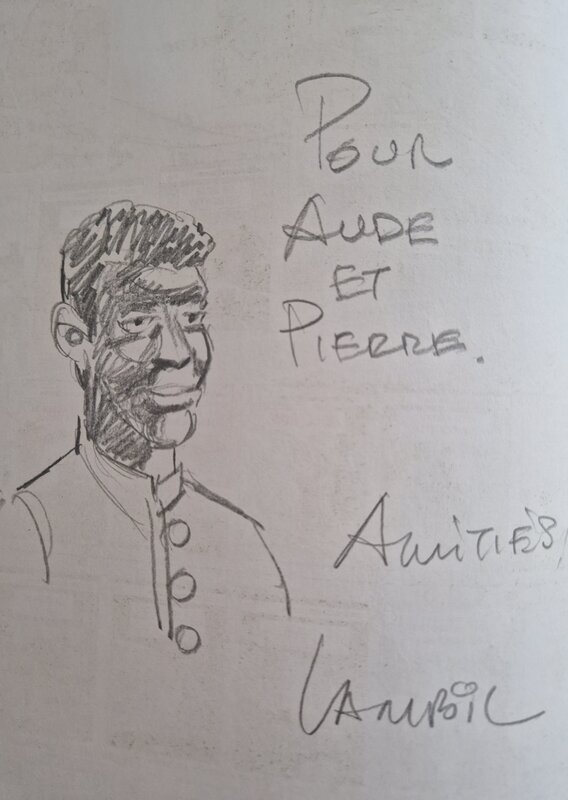 POUR
AUDE
ET
PIERRE.
AMITIÉS,
LAMBIL